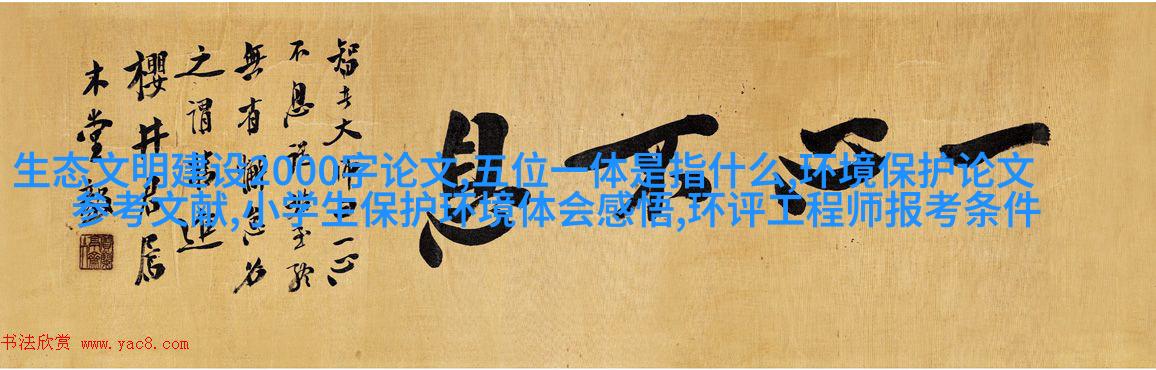 生态文明建设2000字论文,五位一体是指什么,环境保护论文
参考文献,小学生保护环境体会感悟,环评工程师报考条件
一心不息
智者大師曰一心
不息從始至終
無有懈怠名
之謂精進
櫻井君属
木堂毅
书法欣赏 www.yac8.com